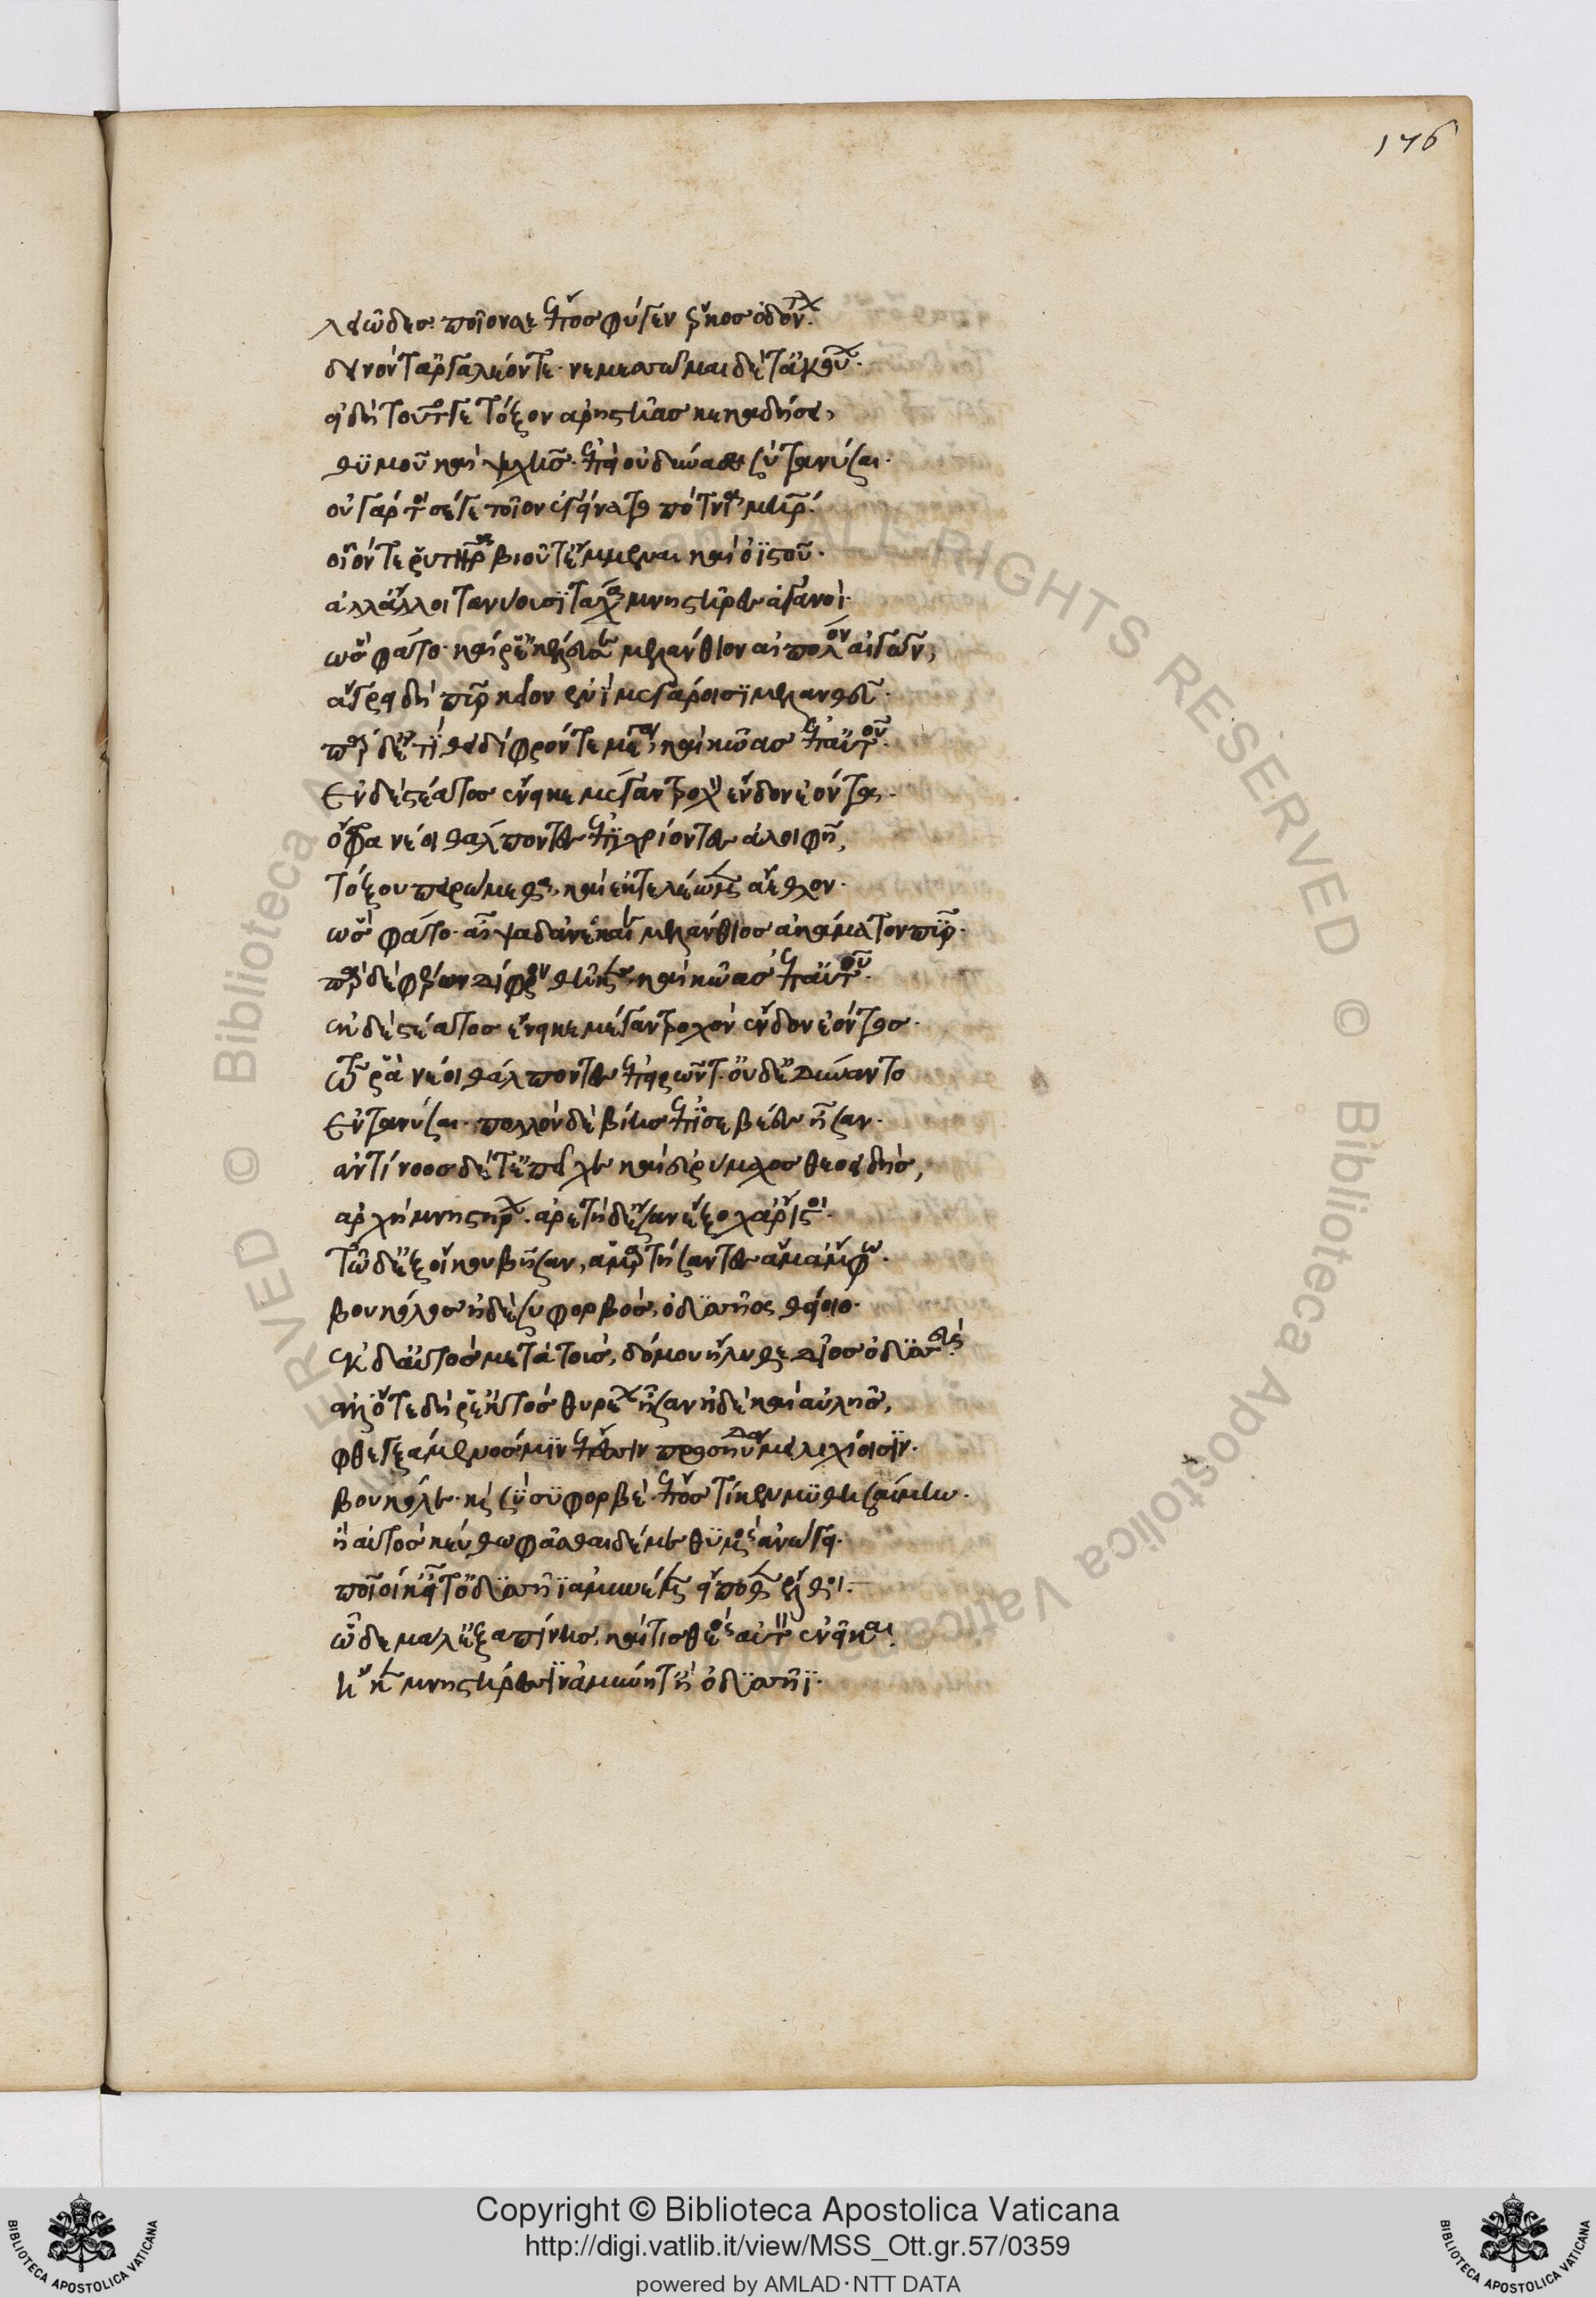 176
λειῶδες ποῖόν σε ἔπος φύγεν ἕρκος ὀδόντων.
δεινόν τ' ἀργαλέον τε. νεμεσσῶμαι δέ τ' ἀκούων.
εἰ δὴ τοῦτό γε τόξον ἀριστῆας κεκαδήσει,
θυμοῦ καὶ ψυχῆς. ἐπεὶ οὐ δύνασαι σὺ τανύσαι.
οὐ γάρ τοι σέ γε τοῖον ἐγείνατο πότνια μήτηρ.
οἷόν τε ῥυτῆρα βιοῦ τ' ἔμμεναι καὶ ὀϊστῶν.
ἀλλ' ἄλλοι τανύουσι τάχα μνηστῆρες ἀγαυοί.
ὣς φάτο. καί ῥ' ἐκέλευσε μελάνθιον αἰπόλον αἰγῶν,
ἄγρει δὴ πῦρ κεῖον ἐνὶ μεγάροισι μελανθεῦ.
πὰρ δὲ τίθει δίφρον τε μέγαν, καὶ κῶας ἐπ' αὐτοῦ.
ἐν δὲ στέατος ἔνεικε μέγαν τροχὸν ἔνδον ἐόντος.
ὄφρα νέοι θάλποντες ἐπιχρίοντες ἀλοιφῇ,
τόξου πειρώμεθα, καὶ ἐκτελέωμεν ἄεθλον.
ὣς φάτο. αἶψα δ' ἀνέκαιε μελάνθιος ἀκάματον πῦρ.
πὰρ δὲ φέρων δίφρον θῆκεν, καὶ κῶας ἐπ' αὐτοῦ.
ἐκ δὲ στέατος ἔνεικε μέγαν τροχὸν ἔνδον ἐόντος.
τῷ ῥα νέοι θάλποντες ἐπειρῶντ'. οὐδ' ἐδύναντο
ἐντανύσαι. πολλὸν δὲ βίης ἐπιδευέες ἦσαν.
ἀντίνοος δ' ἔτ' ἐπεῖχε καὶ εὐρύμαχος θεοειδής,
ἀρχὴ μνηστήρων. ἀρετῇ δ' ἔσαν ἔξοχ' ἄριστοι.
τὼ δ' ἐξ οἴκου βῆσαν, ὁμαρτήσαντες ἅμ' ἄμφω.
βουκόλος ἠδὲ συφορβὸς, ὀδυσσῆος θείοιο.
ἐκ δ' αὐτὸς μετὰ τοὺς, δόμου ἤλυθε δῖος ὀδυσσεύς.
ἀλλ' ὅτε δή ῥ' ἐκτὸς θυρέων ἦσαν ἠδὲ καὶ αὐλῆς,
φθεγξάμενός μιν ἔπεσσι προσηύδα μειλιχίοισιν.
βουκόλε. καὶ σὺ συφορβέ. ἔπος τί κεν μυθησαίμην.
ἢ αὐτὸς κεύθω φάσθαι δέ με θυμὸς ἀνώγει.
ποῖοί κ' εἶτ' ὀδυσσῆϊ ἀμυνέμεν εἴ ποθεν ἔλθοι.
ὧδε μάλ' ἐξαπίνης, καί τις θεὸς αὐτὸν ἐνείκαι.
ἤ κε μνηστήρεσσιν ἀμύνητ' ἢ ὀδυσσῆϊ.
Copyright © Biblioteca Apostolica Vaticana
http://digi.vatlib.it/view/MSS_Ott.gr.57/0359
powered by AMLAD·NTT DATA